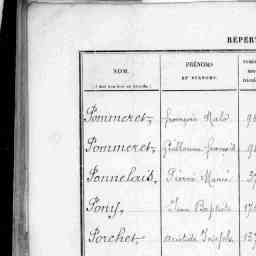 RÉPERT
NOM.
PRÉNOMS
ET SURNOMS.
Pommeret, François Malo 9
Pommeret, Guillaume François 9
Ponnelais, Pierre Marie 37
Pony, Jean Baptiste 17
Porchet, Aristide 137